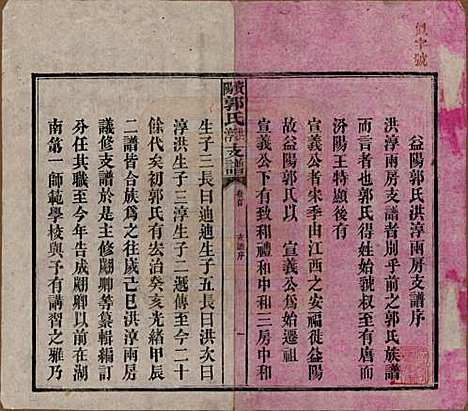 益陽郭氏洪淳兩房支譜序
洪淳兩房支譜者別乎前之郭氏族譜
而言者也郭氏得姓始於虢叔至有唐而
汾陽王特顯後有
宣義公者宋季由江西之安福徙益陽
故益陽郭氏以 宣義公爲始遷祖
宣義公下有致和中和三房中和
郭氏洪淳支譜
卷首
支譜序
一
生子三長曰迪迪生子五長曰洪次曰
淳洪生子三淳生子二遞傳至今二十
餘代矣初郭氏有宏治癸亥光緒甲辰
二譜皆合族爲之往歲己巳洪淳兩房
議修支譜於是主修翩卿等纂輯編訂
分任其職至今年告成翩卿以前在湖
南第一師範學校與予有講習之雅乃